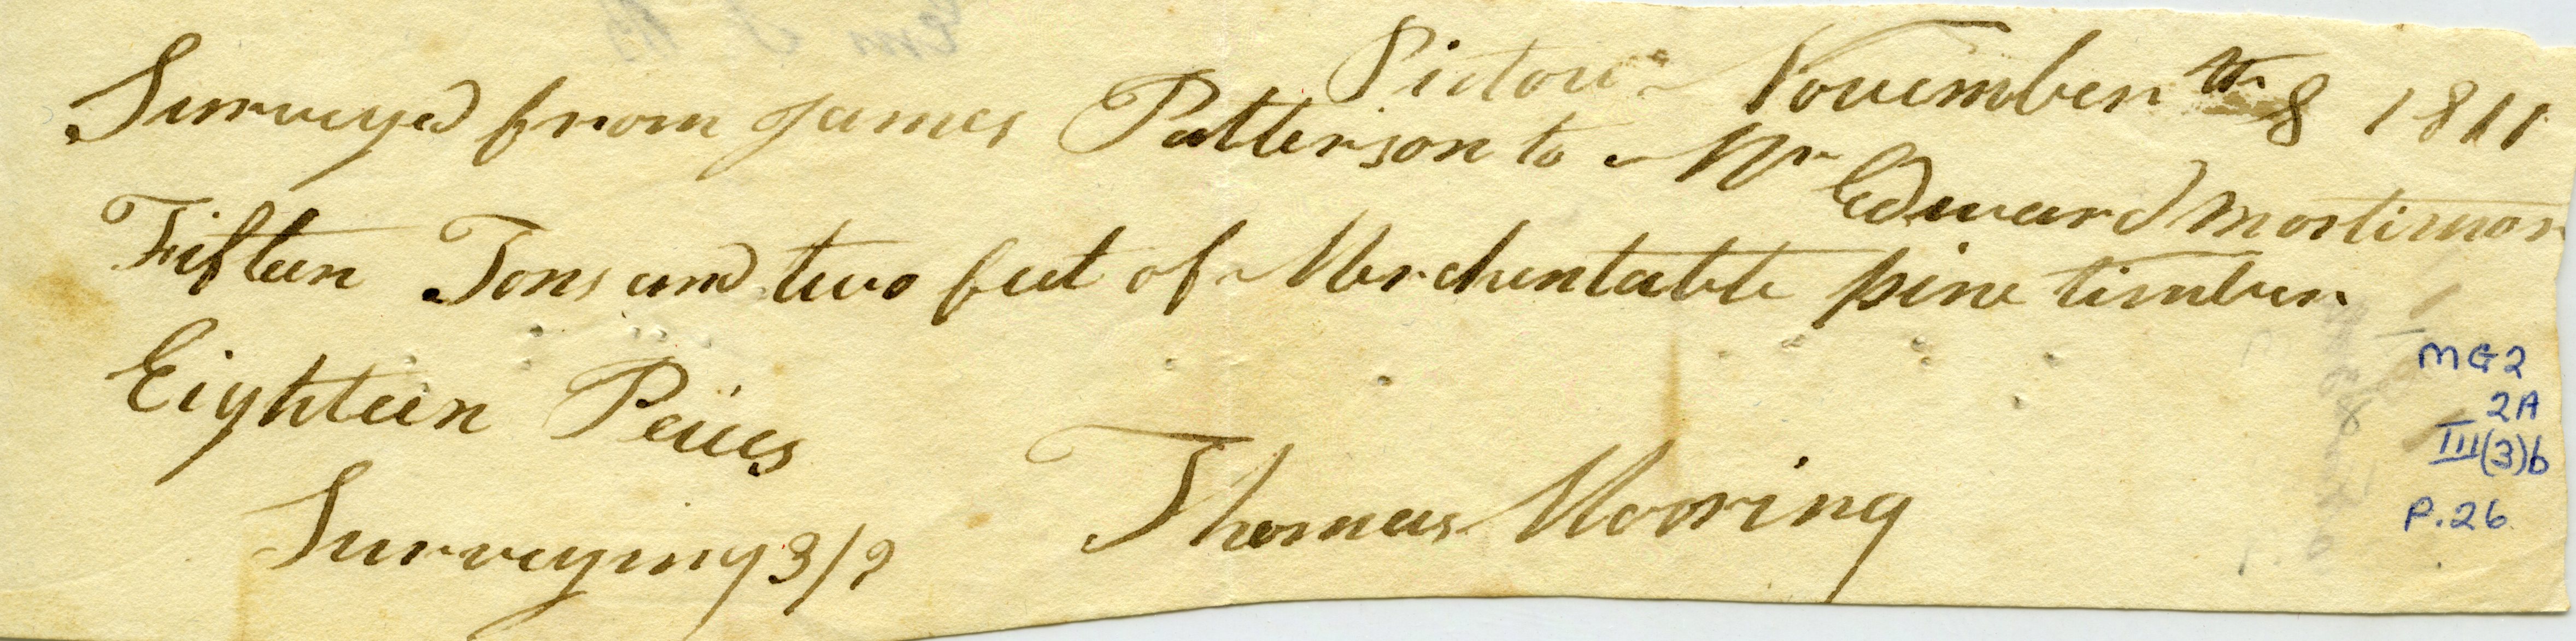 Pictou November th 8 1811
Surveyed from James Patterson to Mr Edward Mortimor
Fifteen Tons and two feet of Merchentable pine timber
Eighteen Peices
Surveying 3/9
Thomas Mooring
MG2
2A
III(3)b
P.26